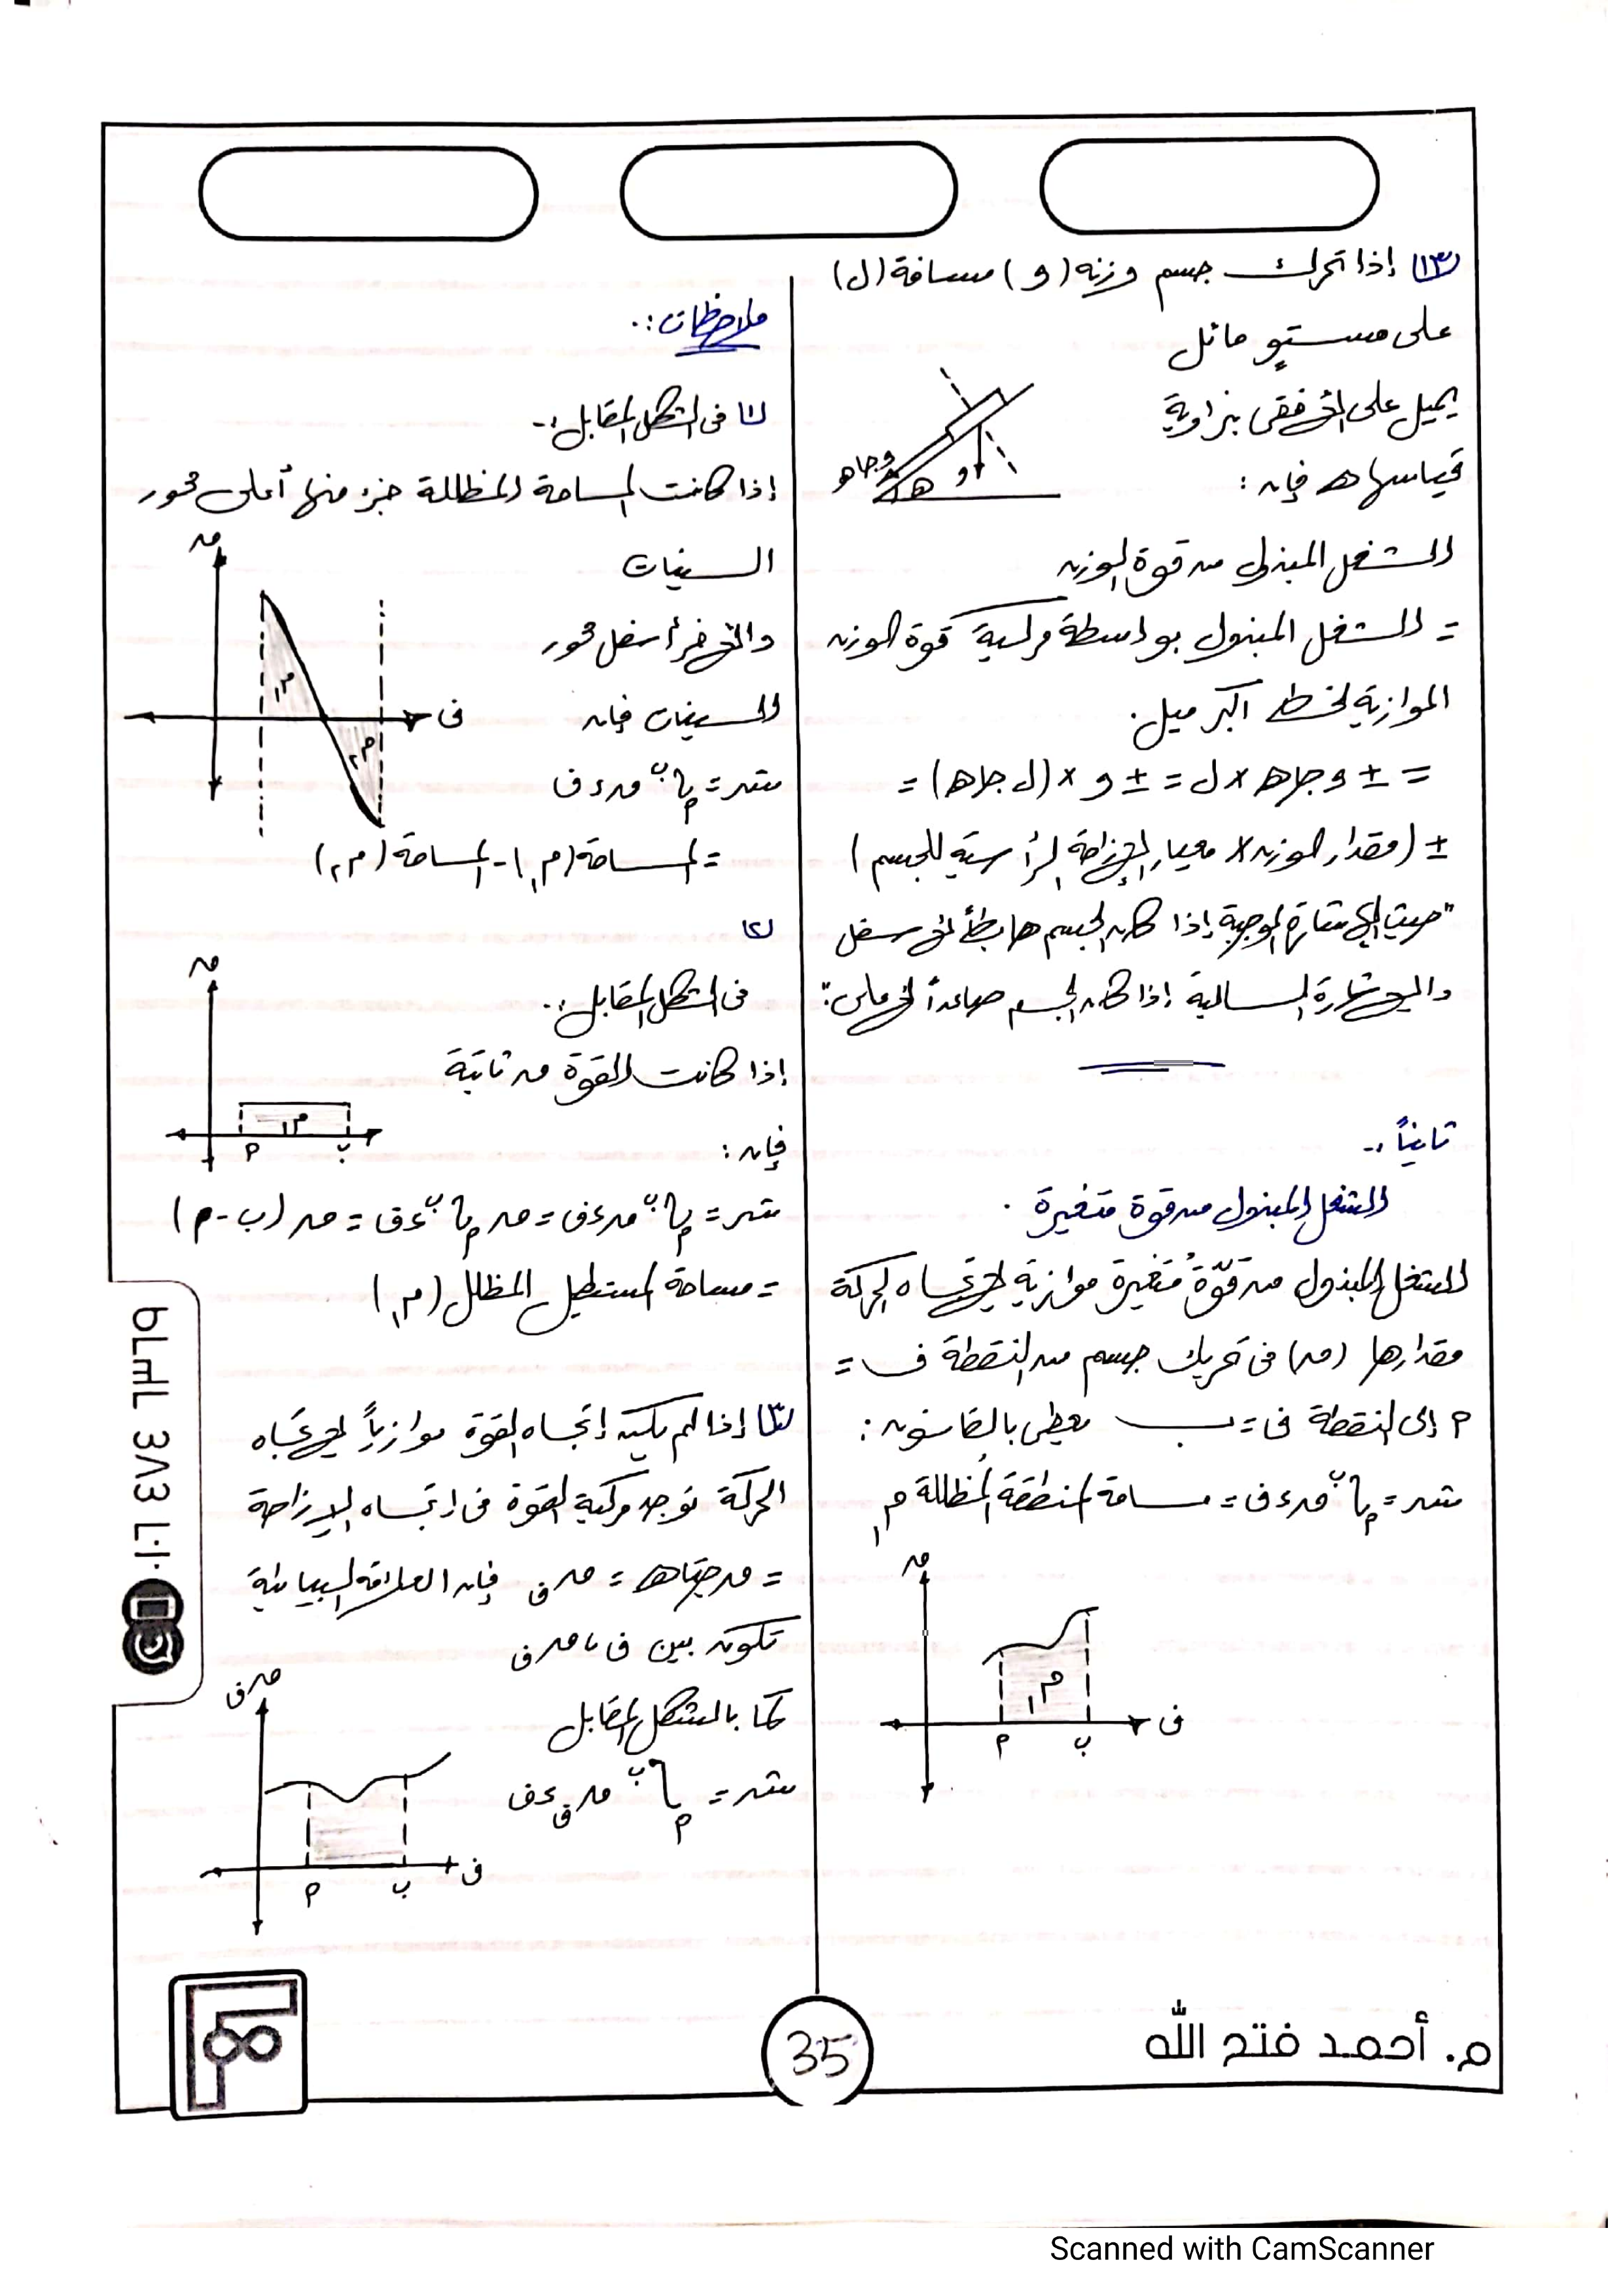 (١٣) إذا تحرك جسم وزنه (و) مسافة (ل)
على مستوٍ مائل
يميل على الأفقى بزاوية
قياسها هـ فإن :
و جا هـ
و
هـ
الشغل المبذول من قوة الوزن
= الشغل المبذول بواسطة مركبة قوة الوزن
الموازية لخط أكبر ميل.
= ± و جا هـ × ل = ± و × (ل جا هـ) =
± (مقدار الوزن × معيار الإزاحة الرأسية للجسم)
"حيث الإشارة الموجبة إذا كان الجسم هابطاً لأسفل
والإشارة السالبة إذا كان الجسم صاعداً لأعلى"
ثانياً :-
الشغل المبذول من قوة متغيرة .
الشغل المبذول من قوة متغيرة موازية لإتجاه الحركة
مقدارها (ق) فى تحريك جسم من النقطة ف =
أ إلى النقطة ف = ب يعطى بالقانون :
شـ = أ∫ب ق ء ف = مساحة المنطقة المظللة م١
ق
م١
ف
أ ب
ملاحظات :.
(١) فى الشكل المقابل :-
إذا كانت المساحة المظللة جزء منها أعلى محور
السينات
والآخر أسفل محور
السينات فإن
شـ = أ∫ب ق ء ف
= المساحة (م١) - المساحة (م٢)
ق
م١
ف
م٢
(٢)
فى الشكل المقابل :.
إذا كانت القوة ق ثابتة
فإن :
ق
م١
أ ب
شـ = أ∫ب ق ء ف = ق أ∫ب ء ف = ق (ب - أ)
= مساحة المستطيل المظلل (م١)
(٣) إذا لم يكن إتجاه القوة موازياً لإتجاه
الحركة نوجد مركبة القوة فى اتجاه الإزاحة
= ق جتا هـ = ق ف فإن العلاقة البيانية
تكون بين ف ، ق ف
كما بالشكل المقابل
شـ = أ∫ب ق ف ء ف
ق ف
ف
أ ب
م. أحمد فتح الله
35
Scanned with CamScanner